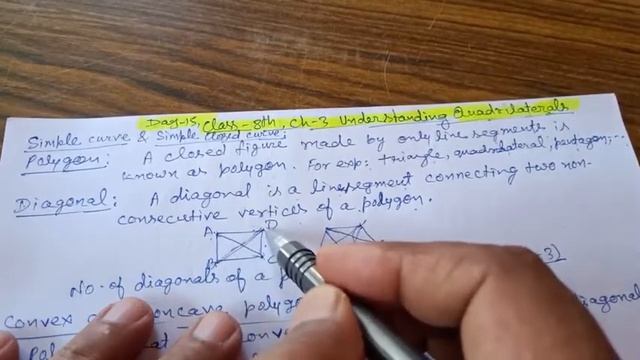 Day-15, Class-8th, Ch-3 Understanding Quadrilaterals
Simple curve & Simple closed curve:
Polygon: A closed figure made by only line segments is
known as polygon. For exp: triangle, quadrilateral, pentagon,...
Diagonal: A diagonal is a linesegment connecting two non-
consecutive vertices of a polygon.
A D
B C
No. of diagonals of a -3)
convex concave polygon Diagonal